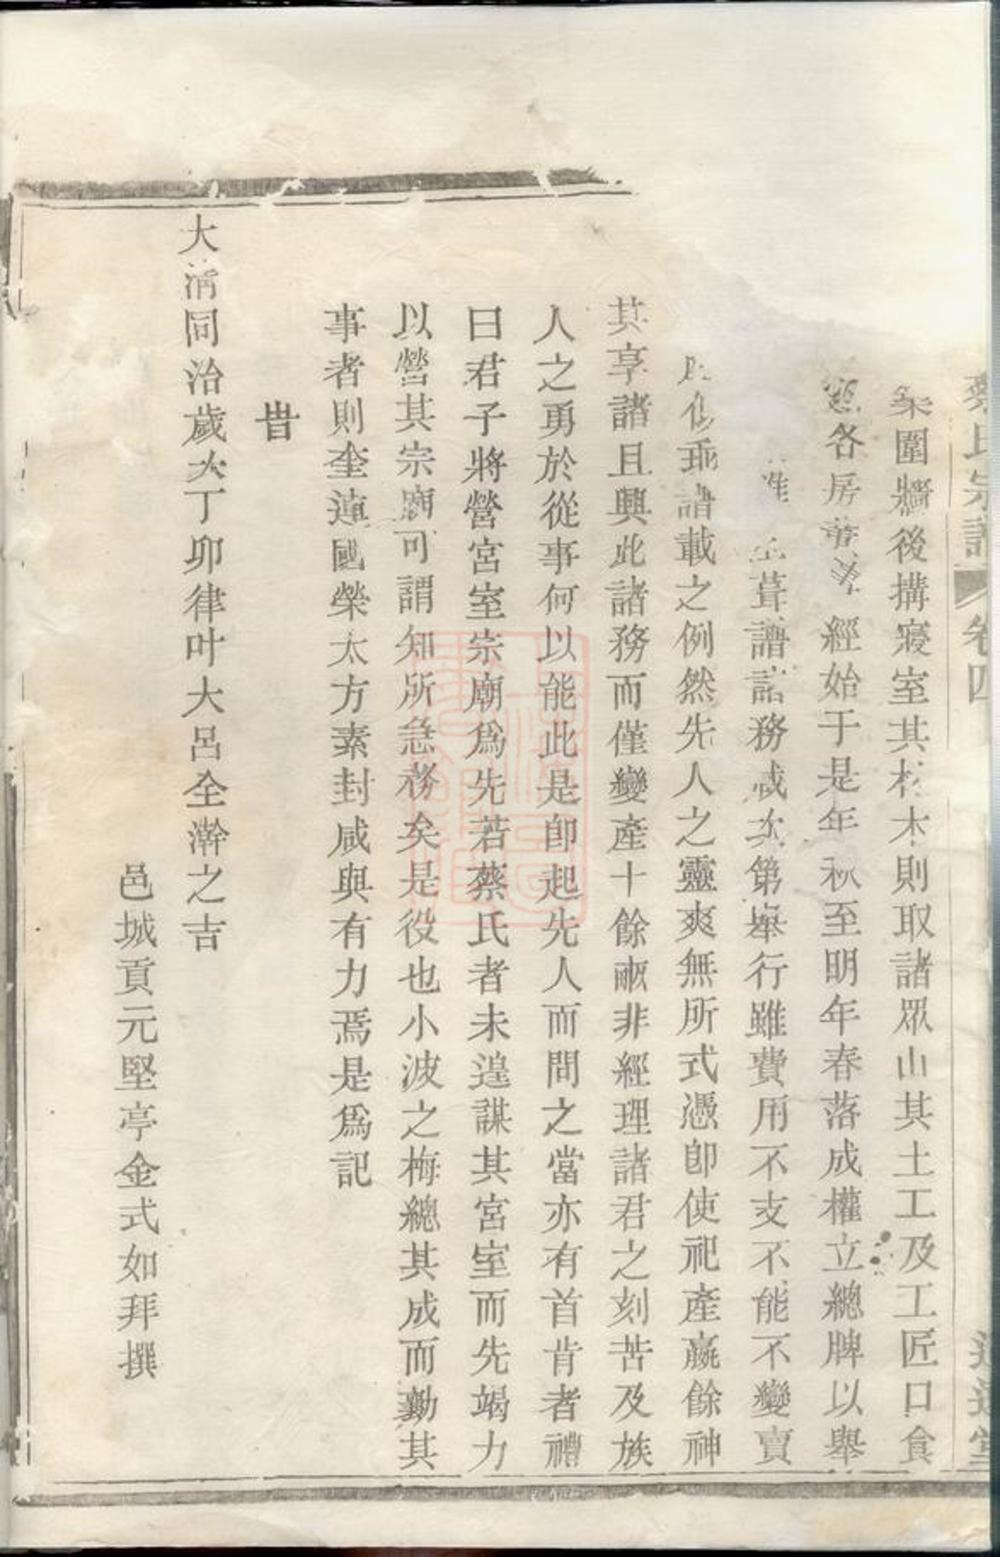 蔡氏宗譜 卷四
築圍牆後搆寢室其材木則取諸眾山其土工及工匠口食
各房 經始于是年秋至明年春落成權立總牌以舉
葺譜諸務以次第舉行雖費用不支不能不變賣
譜載之例然先人之靈爽無所式憑卽使祀產贏餘神
其享諸且興此諸務而僅變產十餘畝非經理諸君之刻苦及族
人之勇於從事何以能此是卽起先人而問之當亦有首肯者禮
曰君子將營宮室宗廟爲先若蔡氏者未遑謀其宮室而先竭力
以營其宗廟可謂知所急務矣是役也小波之梅總其成而勷其
事者則奎蓮國榮太方素封咸與有力焉是爲記
旹
大清同治歲次丁卯律叶大呂全澣之吉
邑城貢元堅亭金式如拜撰